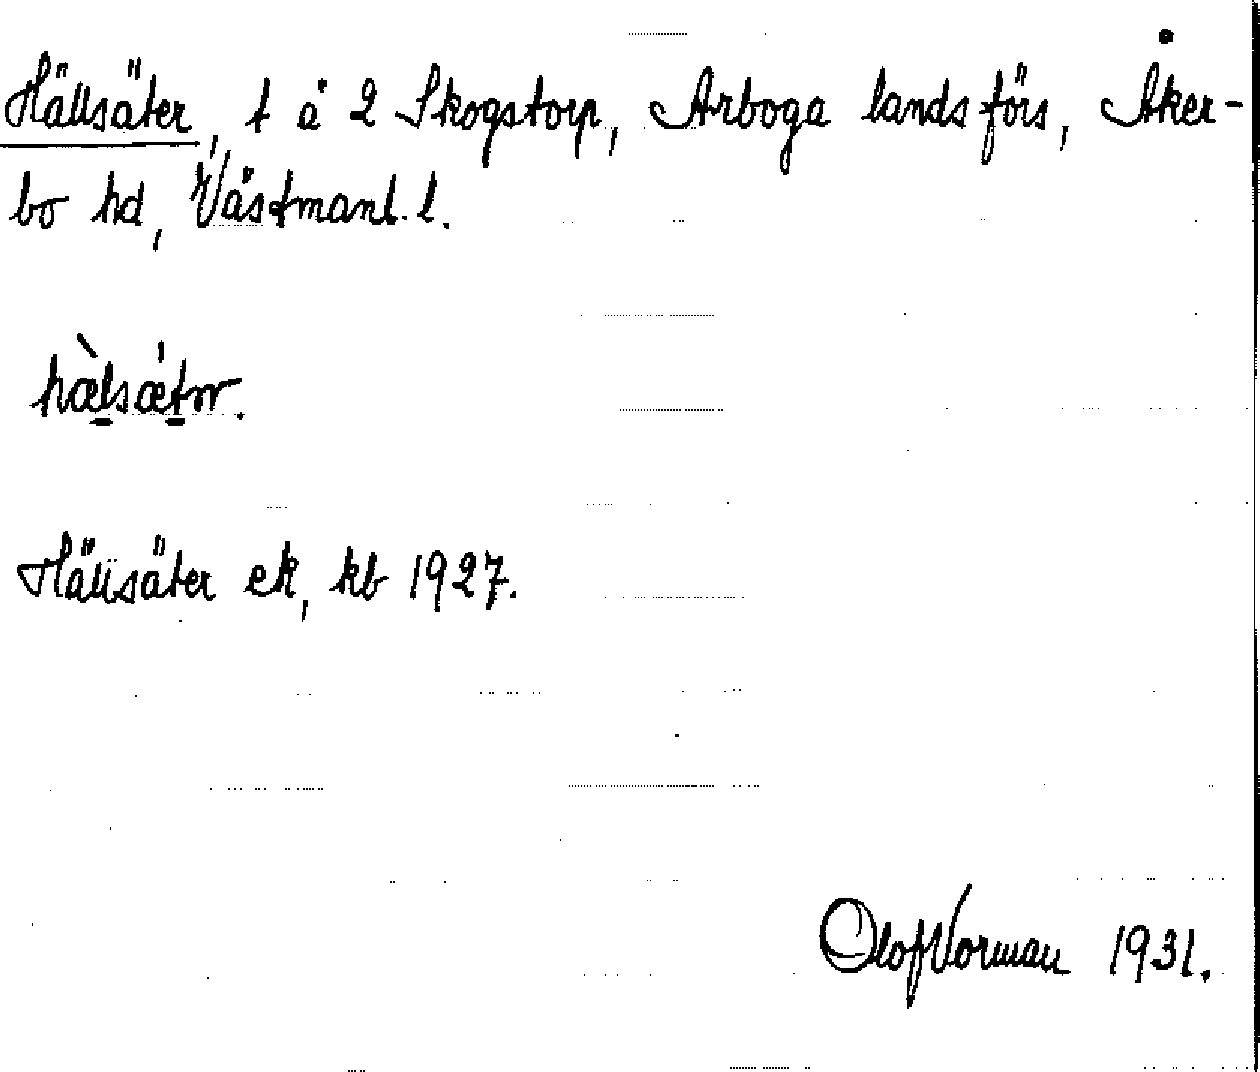 Hällsäter, t å 2 Skogstorp, Arboga landsförs, Åker-
bo hd, Västmanl. l.
hæ̀lsæ̀tər.
Hällsäter ek, kb 1927.
Olof Norman 1931.